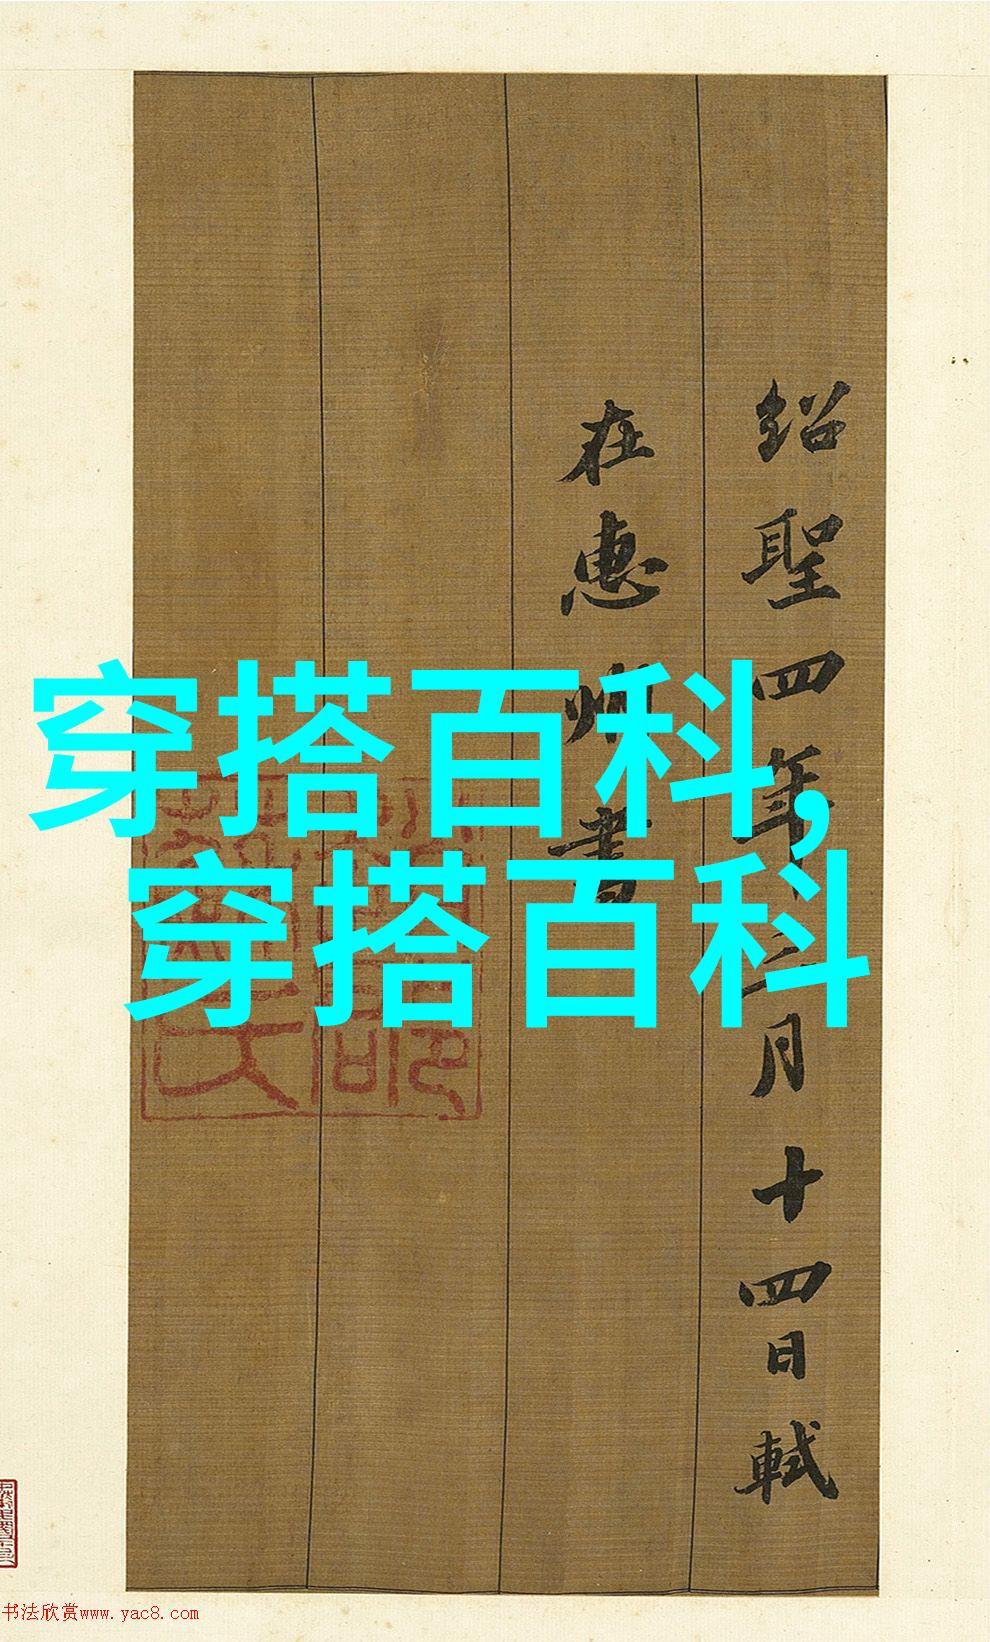 绍聖四年三月十四日軾
在惠州書
穿搭百科,
穿搭百科
书法欣赏www.yac8.com